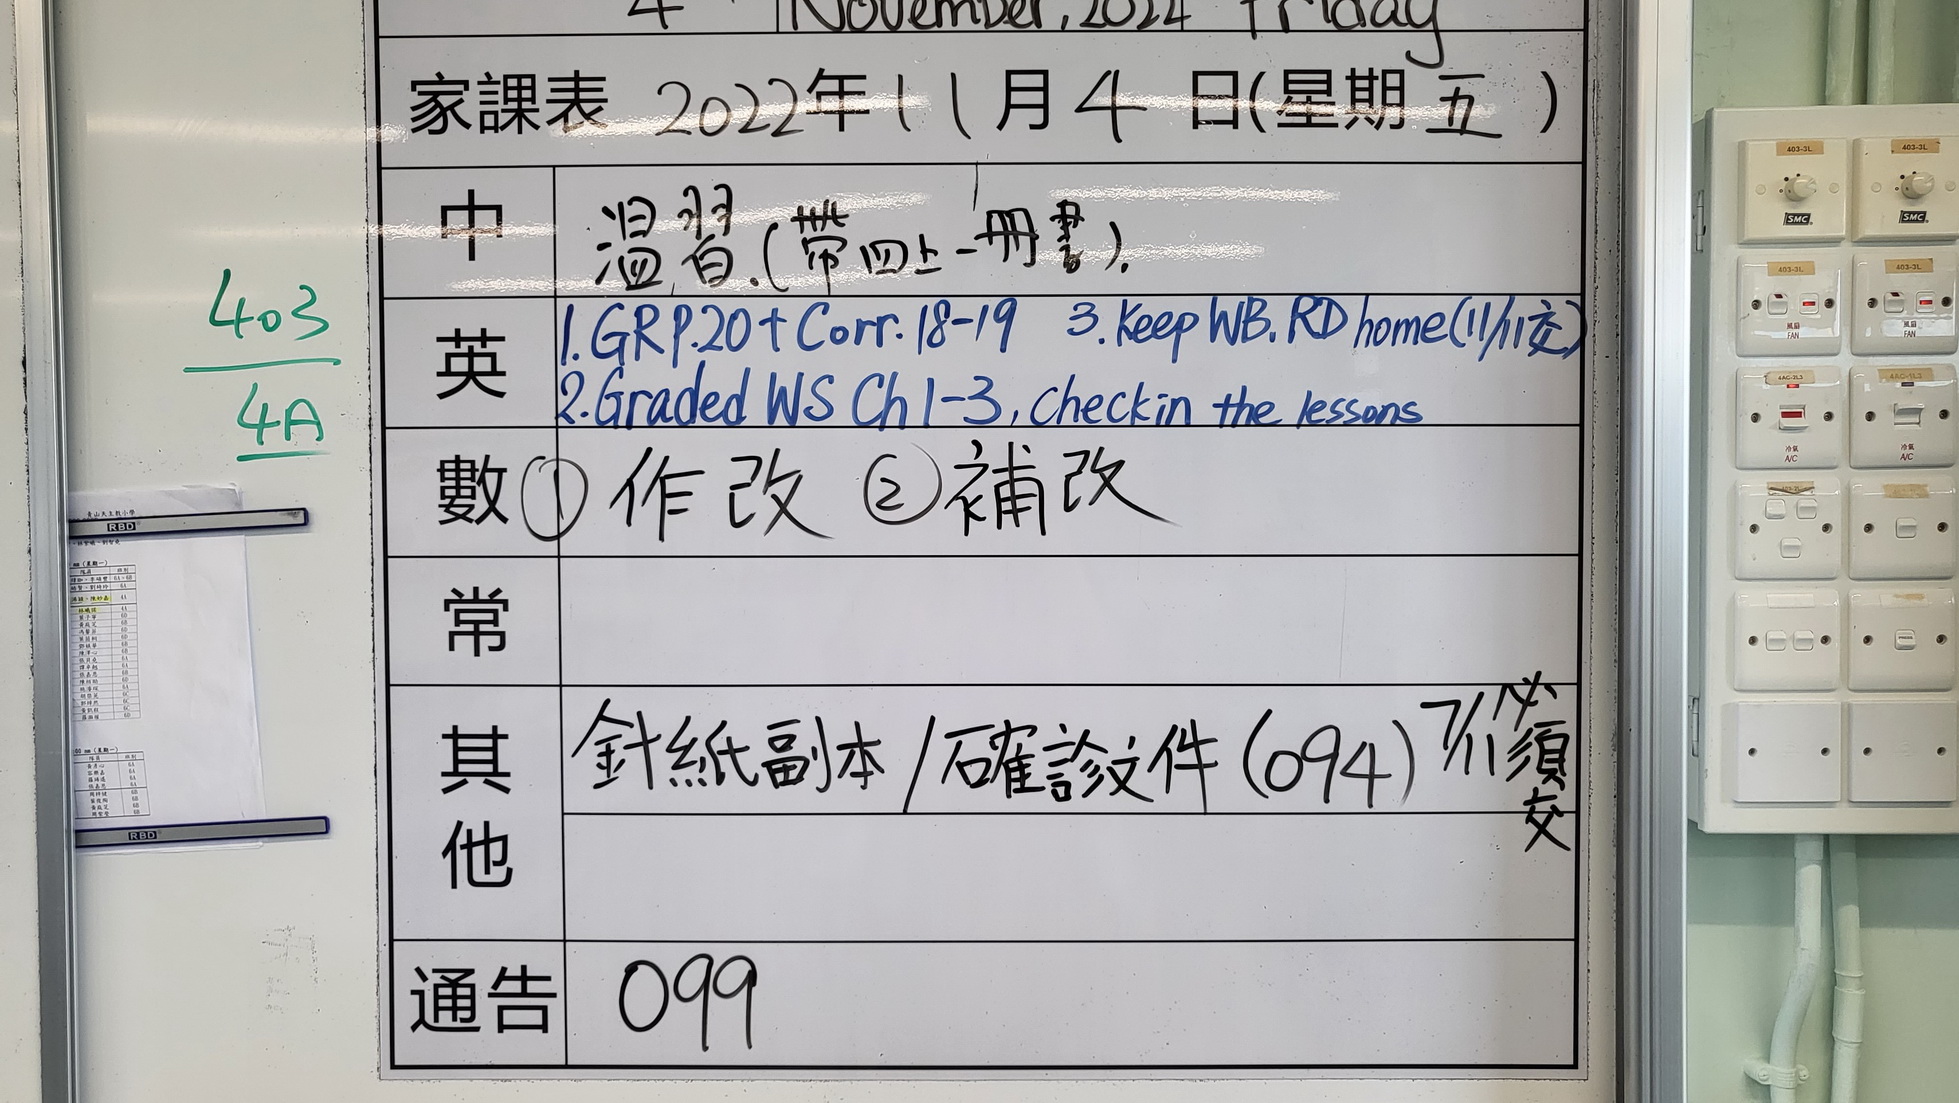 4 November, 2022 Friday
家課表 2022年11月4日(星期五)
中 溫習.(帶四上一冊書).
英 1.GRP.20+Corr.18-19 3.Keep WB.RD home(11/11交)
2.Graded WS Ch1-3, check in the lessons
數 ① 作改 ② 補改
常
其他 針紙副本/確診文件(094) 7/11必須交
通告 099
403
4A
青山天主教小學
RBD
RBD
403-3L
403-3L
SMC
SMC
403-3L
403-3L
風扇
FAN
風扇
FAN
4AC-2L3
4AC-2L3
冷氣
A/C
冷氣
A/C